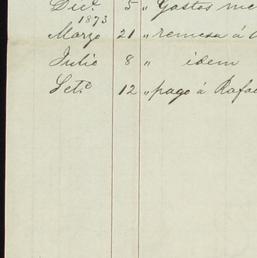 Dic.e 5 " Gastos me
1873
Marzo 21 " remesa á
Julio 8 " idem
Set.e 12 " pago á Rafa